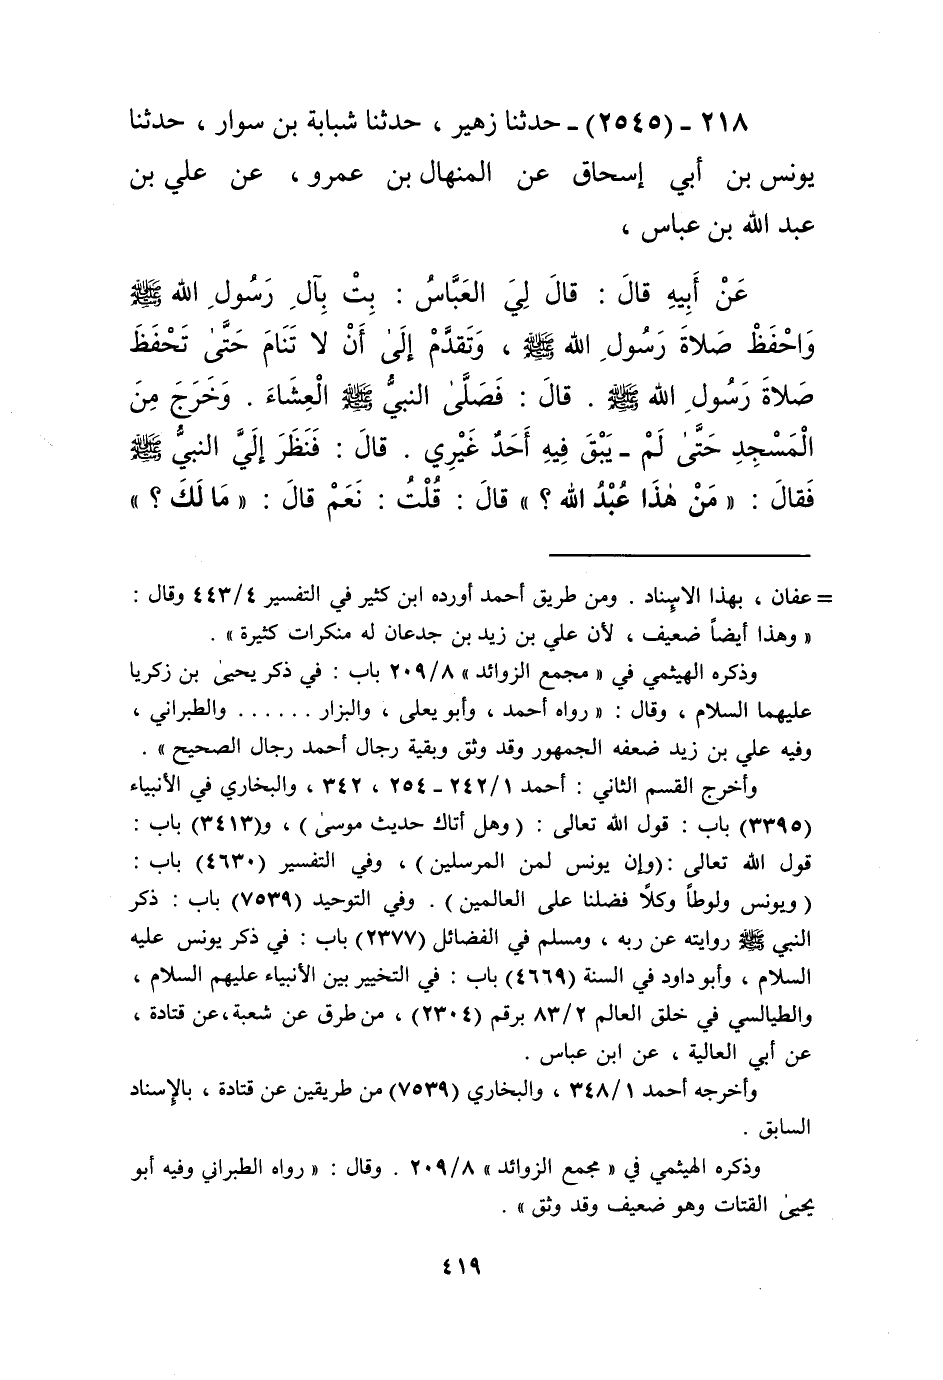 ٢١٨ ـ (٢٥٤٥) ـ حدثنا زهير ، حدثنا شبابة بن سوار ، حدثنا
يونس بن أبي إسحاق عن المنهال بن عمرو ، عن علي بن
عبد الله بن عباس ،
عَنْ أَبِيهِ قالَ : قالَ لِيَ العَبَّاسُ : بِتْ بِآلِ رَسُولِ الله ﷺ
وَاحْفَظْ صَلاةَ رَسُولِ الله ﷺ ، وَتَقَدَّمْ إِلَىٰ أَنْ لا تَنَامَ حَتَّىٰ تَحْفَظَ
صَلاةَ رَسُولِ الله ﷺ . قالَ : فَصَلَّىٰ النبيُّ ﷺ الْعِشَاءَ . وَخَرَجَ مِنَ
الْمَسْجِدِ حَتَّىٰ لَمْ ـ يَبْقَ فِيهِ أَحَدٌ غَيْرِي . قالَ : فَنَظَرَ إِلَيَّ النبيُّ ﷺ
فَقالَ : « مَنْ هٰذَا عُبْدُ الله ؟ » قالَ : قُلْتُ : نَعَمْ قالَ : « مَا لَكَ ؟ »
= عفان ، بهذا الإسناد . ومن طريق أحمد أورده ابن كثير في التفسير ٤٤٣/٤ وقال :
« وهذا أيضاً ضعيف ، لأن علي بن زيد بن جدعان له منكرات كثيرة » .
وذكره الهيثمي في « مجمع الزوائد » ٢٠٩/٨ باب : في ذكر يحيىٰ بن زكريا
عليهما السلام ، وقال : « رواه أحمد ، وأبو يعلى ، والبزار ...... والطبراني ،
وفيه علي بن زيد ضعفه الجمهور وقد وثق وبقية رجال أحمد رجال الصحيح » .
وأخرج القسم الثاني : أحمد ٢٤٢/١ ـ ٢٥٤ ، ٣٤٢ ، والبخاري في الأنبياء
(٣٣٩٥) باب : قول الله تعالى : ( وهل أتاك حديث موسىٰ ) ، و(٣٤١٣) باب :
قول الله تعالى :(وإن يونس لمن المرسلين ) ، وفي التفسير (٤٦٣٠) باب :
( ويونس ولوطاً وكلًا فضلنا على العالمين ) . وفي التوحيد (٧٥٣٩) باب : ذكر
النبي ﷺ روايته عن ربه ، ومسلم في الفضائل (٢٣٧٧) باب : في ذكر يونس عليه
السلام ، وأبو داود في السنة (٤٦٦٩) باب : في التخيير بين الأنبياء عليهم السلام ،
والطيالسي في خلق العالم ٨٣/٢ برقم (٢٣٠٤) ، من طرق عن شعبة،عن قتادة ،
عن أبي العالية ، عن ابن عباس .
وأخرجه أحمد ٣٤٨/١ ، والبخاري (٧٥٣٩) من طريقين عن قتادة ، بالإسناد
السابق .
وذكره الهيثمي في « مجمع الزوائد » ٢٠٩/٨ . وقال : « رواه الطبراني وفيه أبو
يحيىٰ القتات وهو ضعيف وقد وثق » .
٤١٩